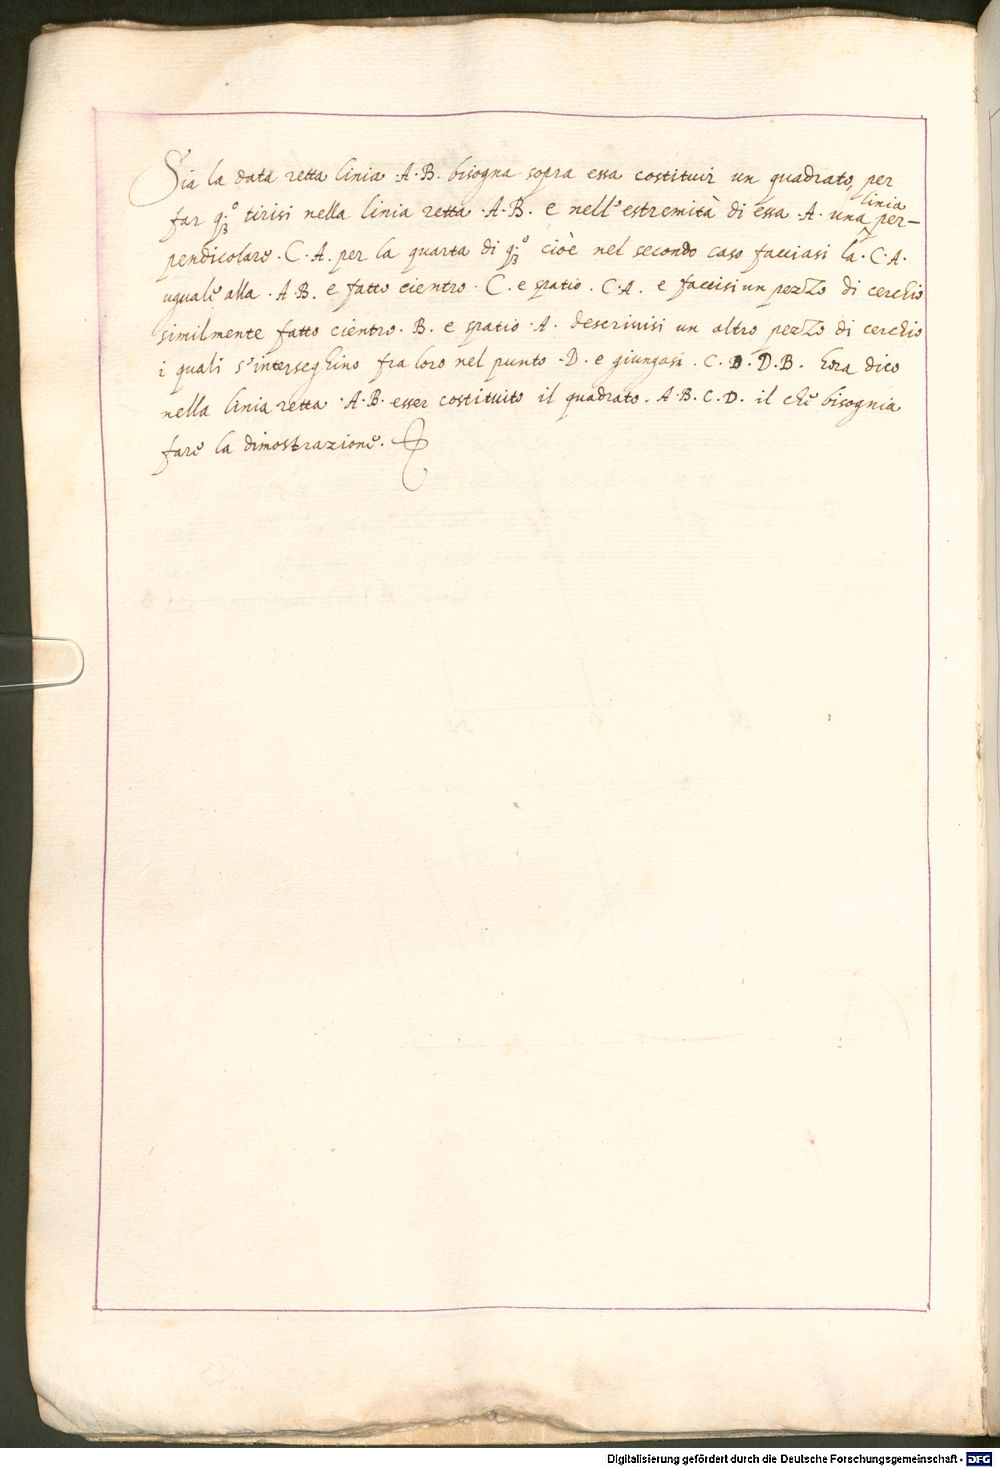 Sia la data retta linia ·A·B· bisogna sopra essa costituir un quadrato, per
linia
far q.º tirisi nella linia retta ·A·B· e nell'estremità di essa ·A· una per-
pendicolare ·C·A· per la quarta di q.º cioè nel secondo caso facciasi la ·C·A·
uguale alla ·A·B· e fatto cientro ·C· e spatio ·C·A· e faccisi un pezzo di cerchio
similmente fatto cientro ·B· e spatio ·A· descrivisi un altro pezzo di cerchio
i quali s'interseghino fra loro nel punto ·D· e giungasi ·C·D·D·B· hora dico
nella linia retta ·A·B· esser costituito il quadrato ·A·B·C·D· il che bisognia
fare la dimostrazione·
Digitalisierung gefördert durch die Deutsche Forschungsgemeinschaft - DFG